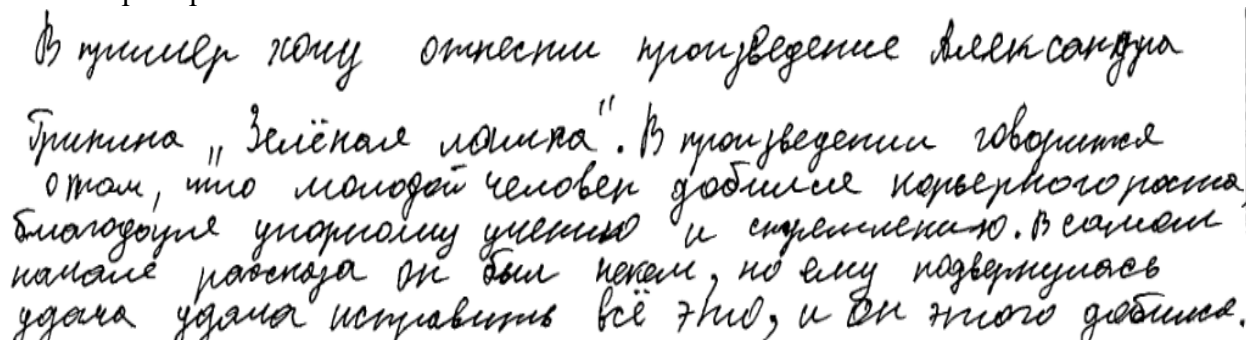 В пример хочу отнести произведение Александра
Гринина „Зелёная лампа". В произведении говорится
о том, что молодой человек добился карьерного роста,
благодаря упорному учению и стремлению. В самом
начале рассказа он был некем, но ему подвернулась
удача удача исправить всё это, и он этого добился.